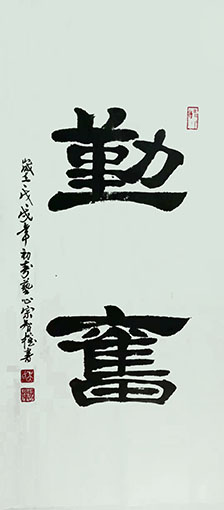 勤奮
歲在戊戌年初春藝心宗智權書